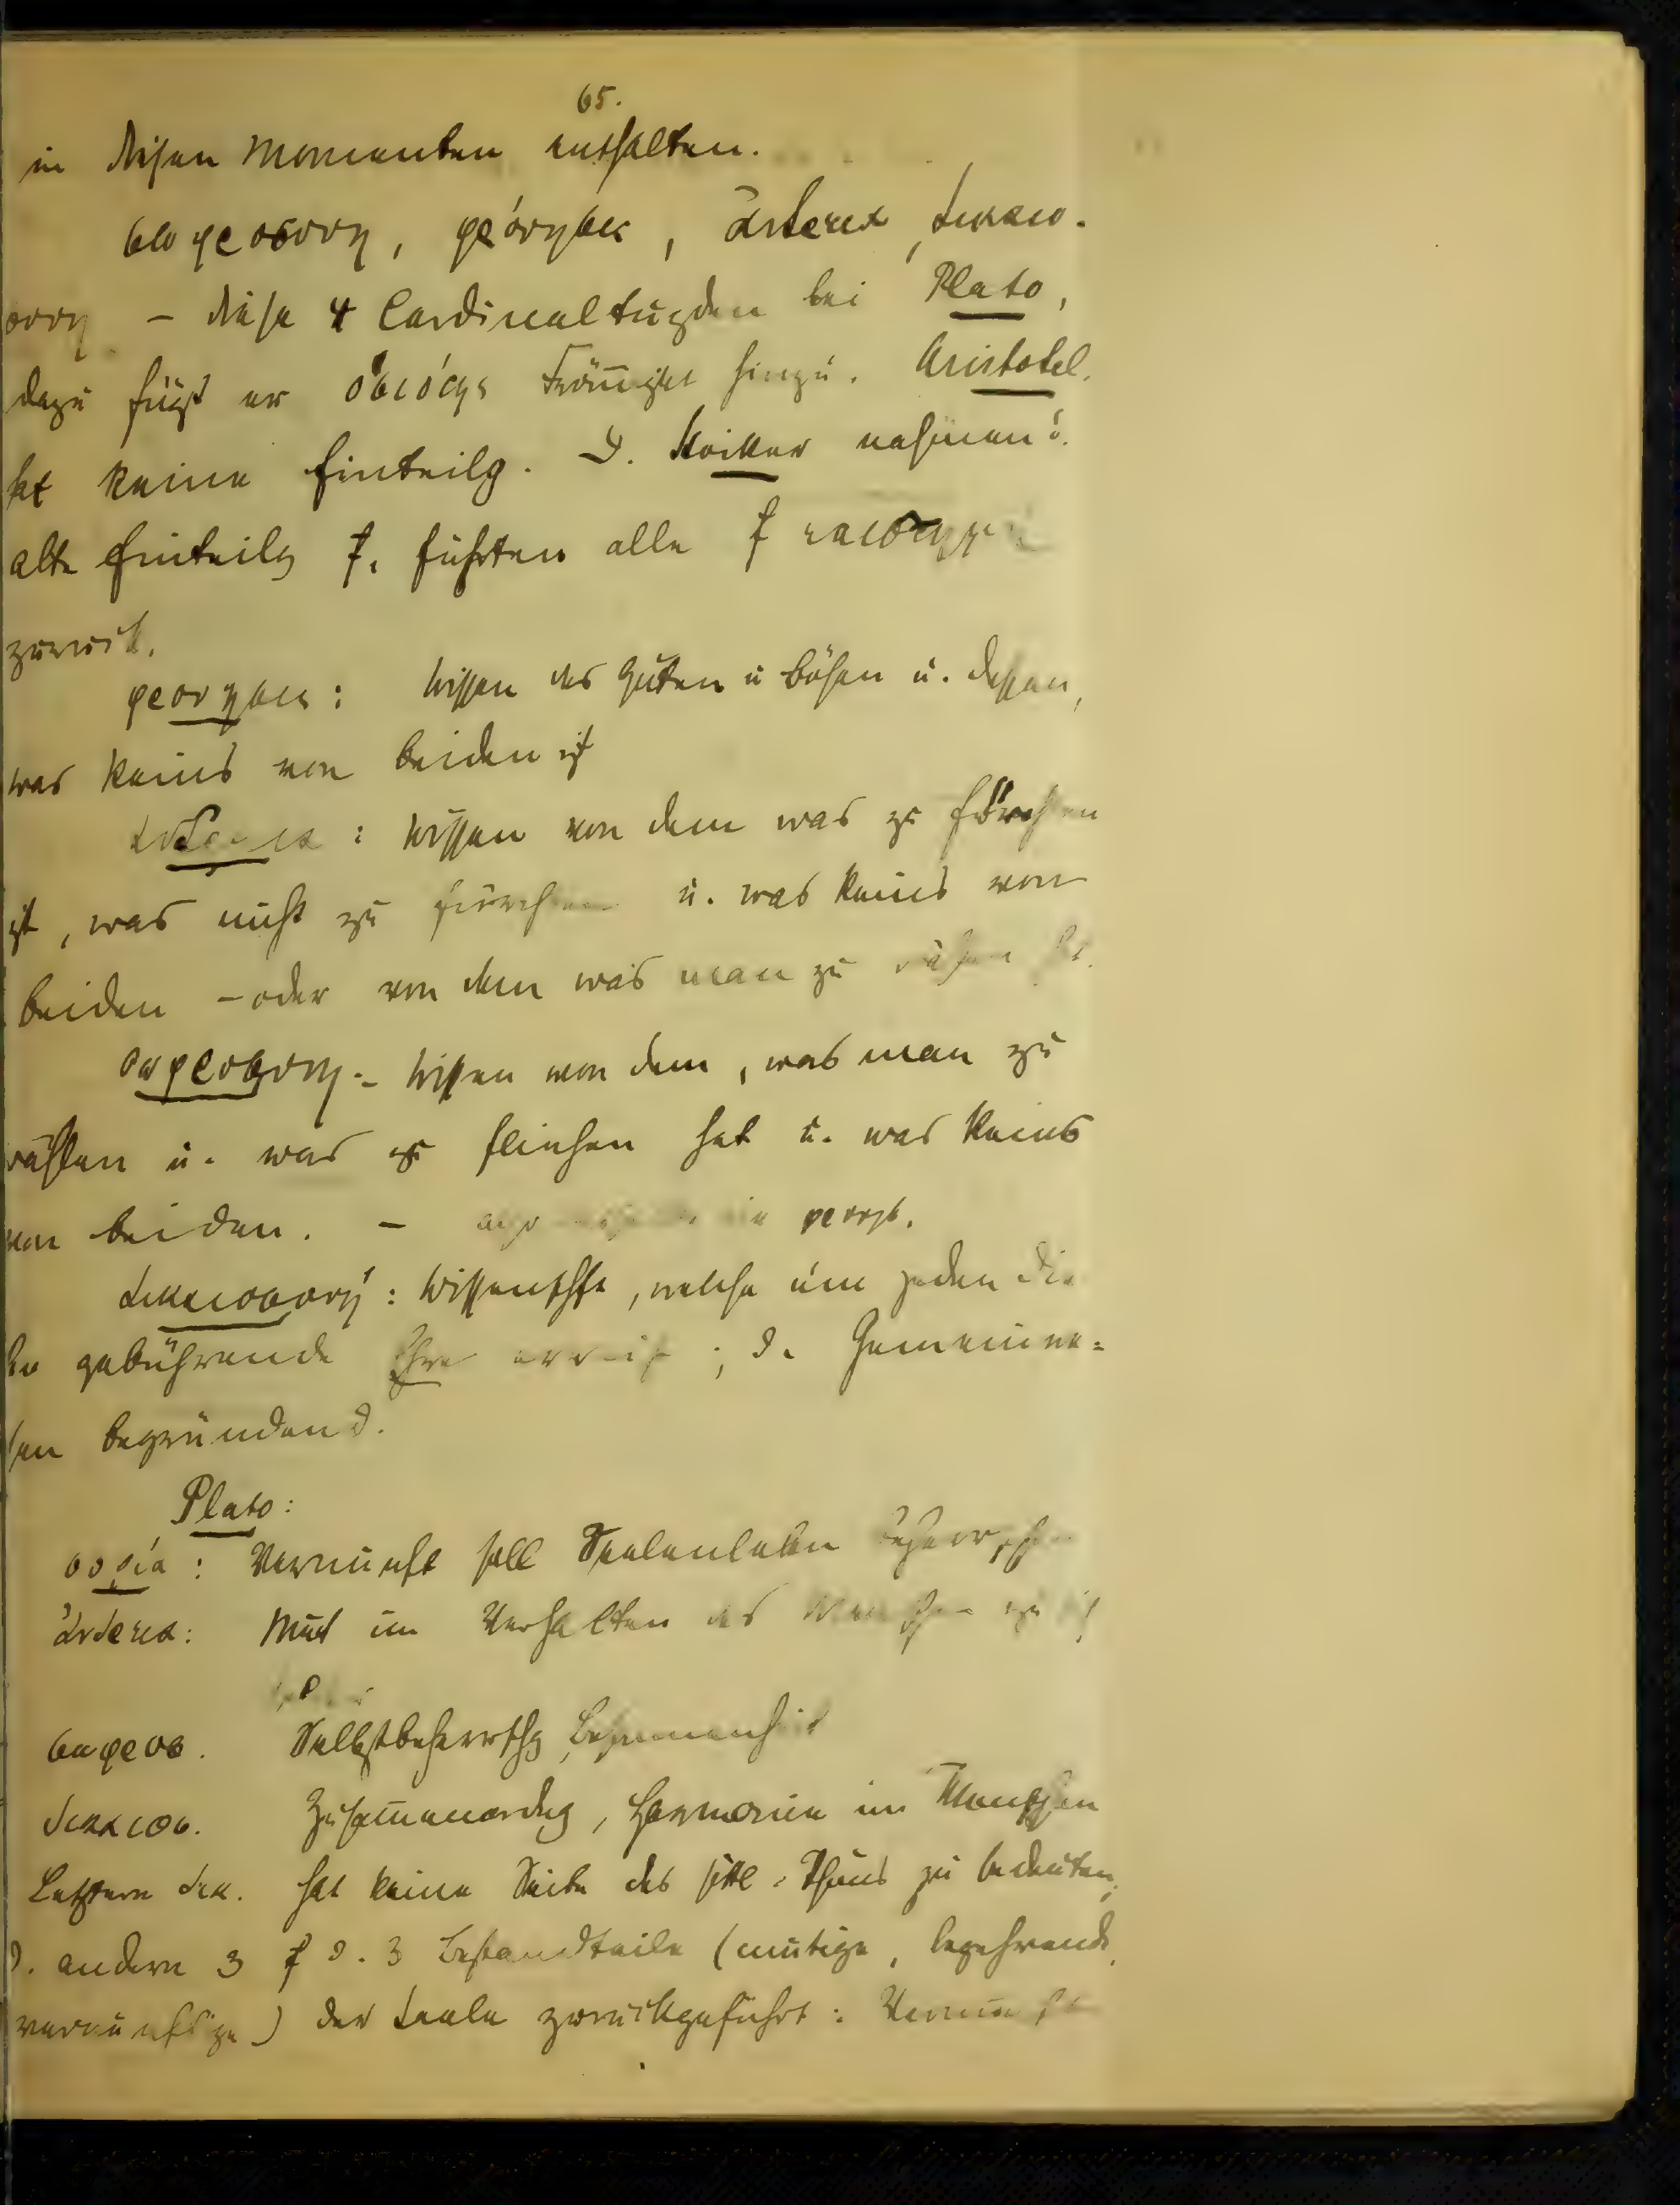 65.
in diesen Momenten enthalten.
σωφροσυνη, φρόνησις, ἀνδρεια, δικαιο-
συνη – diese 4 Cardinaltugden bei Plato,
dazu fügt er ὁσιότης Frömgkt hinzu. Aristotel.
ht keine Einteilg. D. Stoiker nahmen d.
alte Einteilg führten alle
zurück.
φρονησις: Wissen des Guten u Bösen u. dessen,
was keines von beiden ist
ανδρεια: Wissen von dem was zu fürchten
ist, was nicht zu fürchten u. was keines von
beiden – oder von dem was man zu
σωφροσυνη. – Wissen von dem, was man zu
wählen u. was zu fliehen hat u. was keines
von beiden. – φρονησ.
δικαιοσυνη: Wissenschft, welche um jeden die
gebührende Ehre ; d. Gemeinwe=
sen begründend.
Plato:
σοφία: Vernunft soll Seelenleben beherrschen
ἀνδρεια: Mut im Verhalten des Menschen
σωφροσ. Selbstbeherrschg Besonnenheit
δικαιοσ. Zusammenordng, Harmonie im Menschen
Letztere δικ. hat keine Seite des sittl. Thuns zu bedeuten,
d. andern 3 d. 3 Bestandteile (mutige, begehrende,
vernünftige) der Seele zurückgeführt: Vernunft